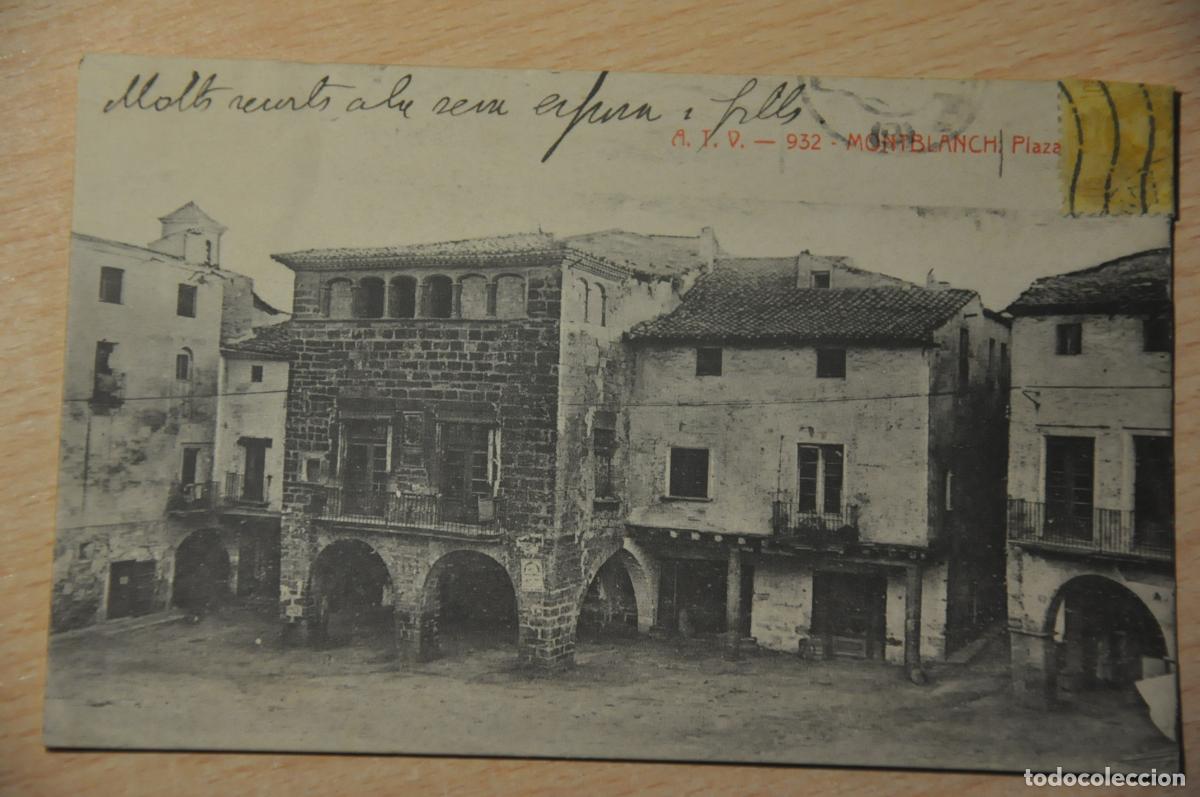 Molts recorts a la seva esposa i fills
A. T. V. — 932 - MONTBLANCH. Plaza
todocoleccion